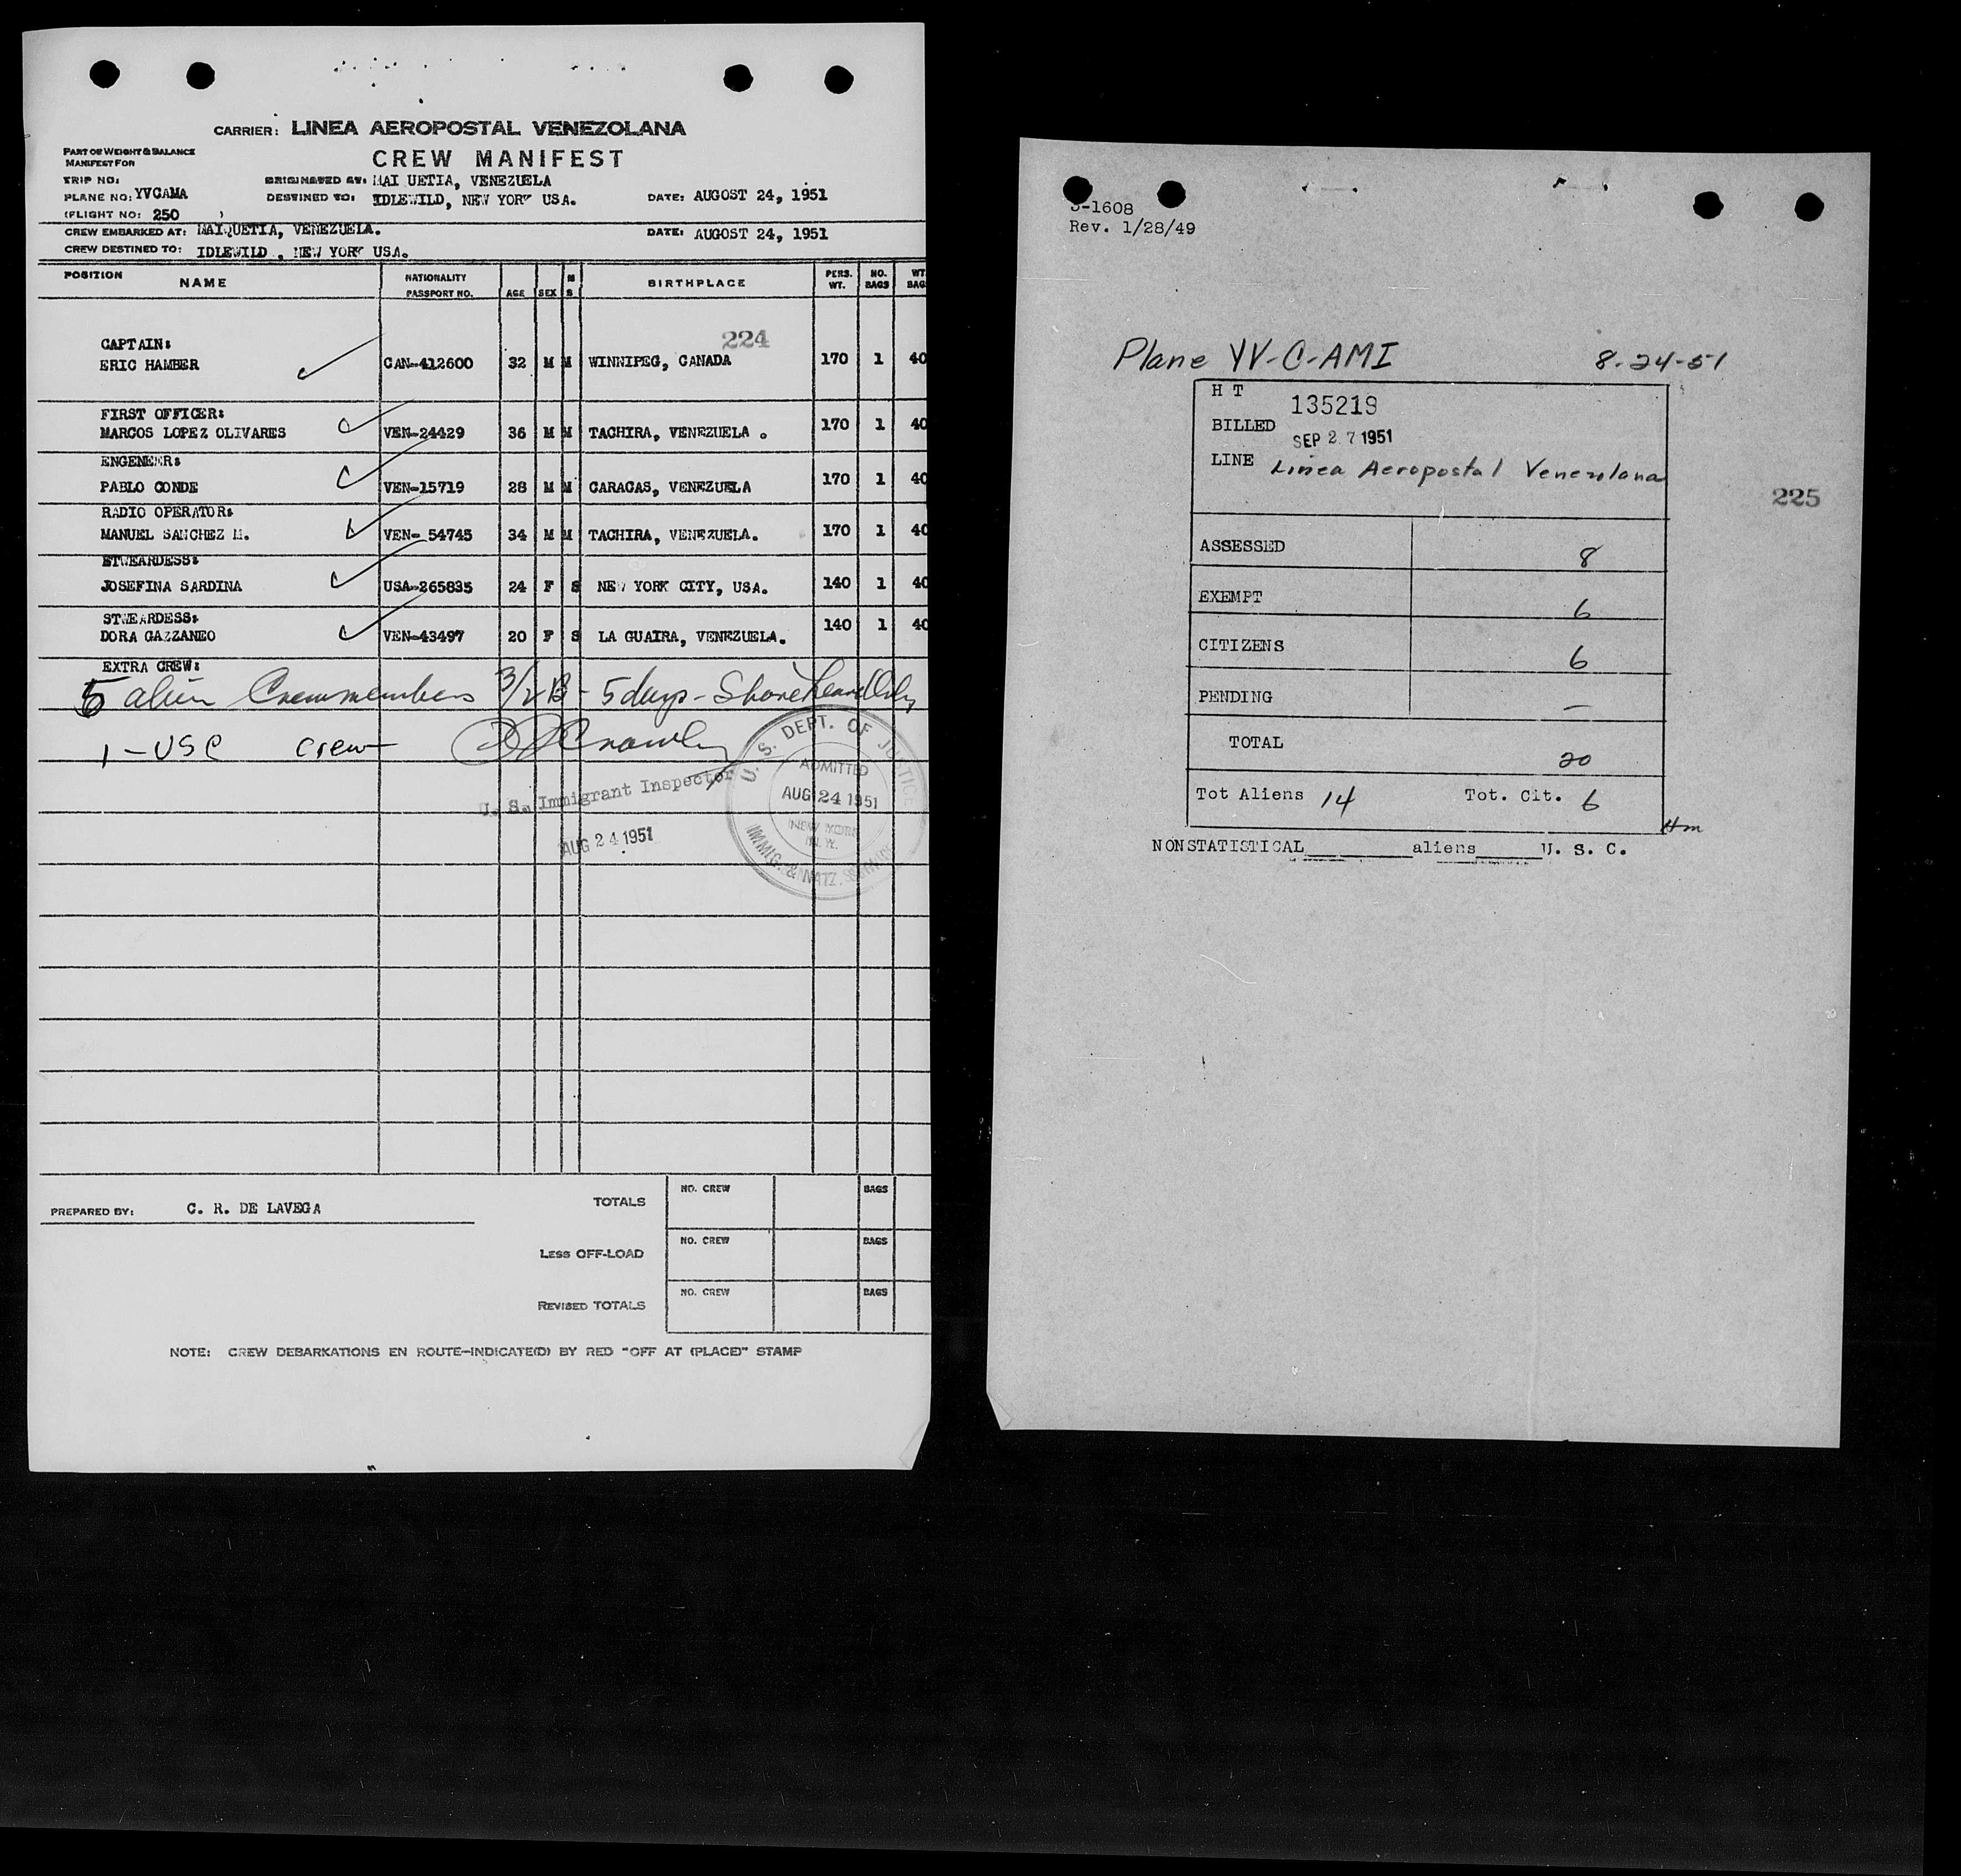 CARRIER: LINEA AEROPOSTAL VENEZOLANA
PART OF WEIGHT & BALANCE
MANIFEST FOR
CREW MANIFEST
TRIP NO:
ORIGINATED AT: MAI UETIA, VENEZUELA
PLANE NO: YVCAMA
DESTINED TO: IDLEWILD, NEW YORK USA.
DATE: AUGOST 24, 1951
(FLIGHT NO: 250 )
CREW EMBARKED AT: MAIQUETIA, VENEZUELA.
DATE: AUGOST 24, 1951
CREW DESTINED TO: IDLEWILD , NEW YORK USA.
POSITION NAME NATIONALITY PASSPORT NO. AGE SEX M S BIRTHPLACE PERS. WT. NO. BAGS WT. BAGS
224
CAPTAIN:
ERIC HAMBER CAN-412600 32 M M WINNIPEG, CANADA 170 1 40
FIRST OFFICER:
MARCOS LOPEZ OLIVARES VEN-24429 36 M M TACHIRA, VENEZUELA . 170 1 40
ENGENEER:
PABLO CONDE VEN-15719 28 M M CARACAS, VENEZUELA 170 1 40
RADIO OPERATOR:
MANUEL SANCHEZ M. VEN- 54745 34 M M TACHIRA, VENEZUELA. 170 1 40
STWEARDESS:
JOSEFINA SARDINA USA-265835 24 F S NEW YORK CITY, USA. 140 1 40
STWEARDESS:
DORA GAZZANEO VEN-43497 20 F S LA GUAIRA, VENEZUELA. 140 1 40
EXTRA CREW:
5 alien Crewmembers 3/2 B - 5 days - Shore Leave Only
1 - USC crew
U. S. Immigrant Inspector
AUG 24 1951
U. S. DEPT. OF JUSTICE
ADMITTED
AUG 24 1951
NEW YORK
N.Y.
IMMIG. & NATZ. SERVICE
PREPARED BY: C. R. DE LAVEGA
TOTALS NO. CREW BAGS
LESS OFF-LOAD NO. CREW BAGS
REVISED TOTALS NO. CREW BAGS
NOTE: CREW DEBARKATIONS EN ROUTE-INDICATE(D) BY RED "OFF AT (PLACE)" STAMP
-1608
Rev. 1/28/49
Plane YV-C-AMI 8-24-51
H T 135219
BILLED SEP 27 1951
LINE Linea Aeropostal Venezolana
225
ASSESSED 8
EXEMPT 6
CITIZENS 6
PENDING —
TOTAL 20
Tot Aliens 14 Tot. Cit. 6
NONSTATISTICAL aliens U. S. C.